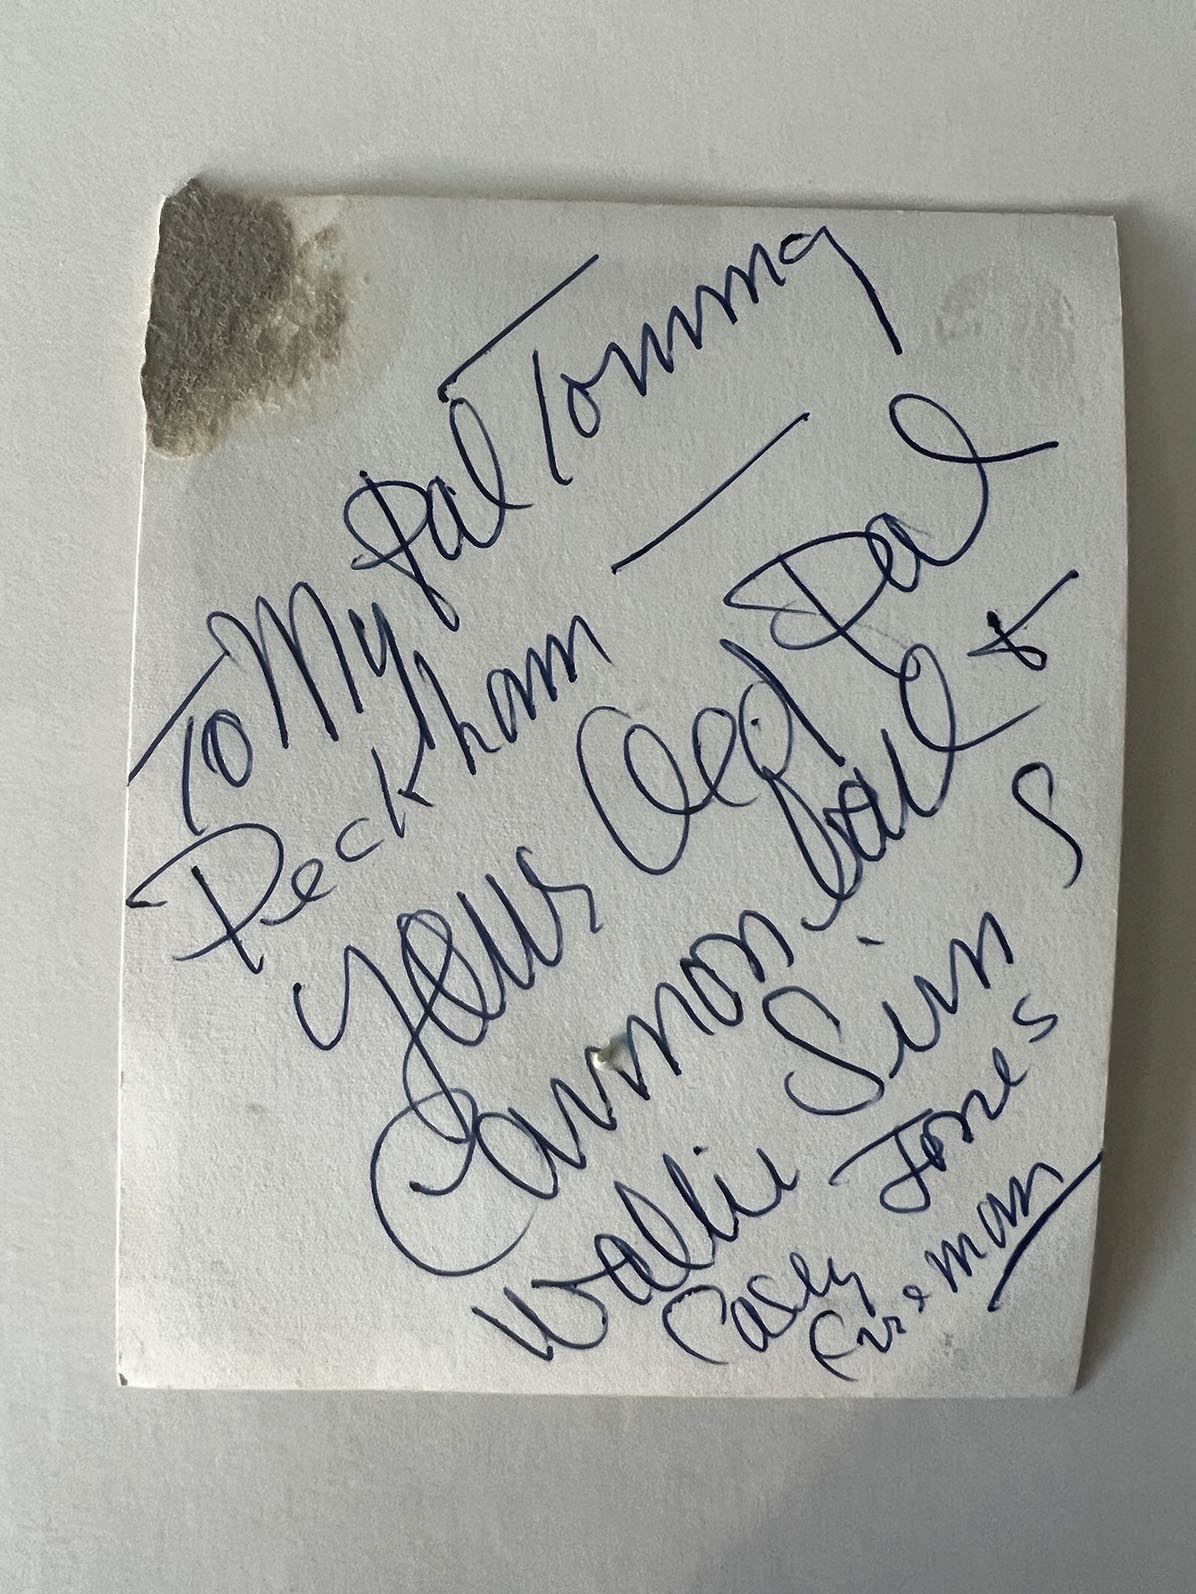 To My Pal Tommy
Peckham —
Your Old Pal
Cannonball &
Wallie Sims
Casey Jones
Fireman